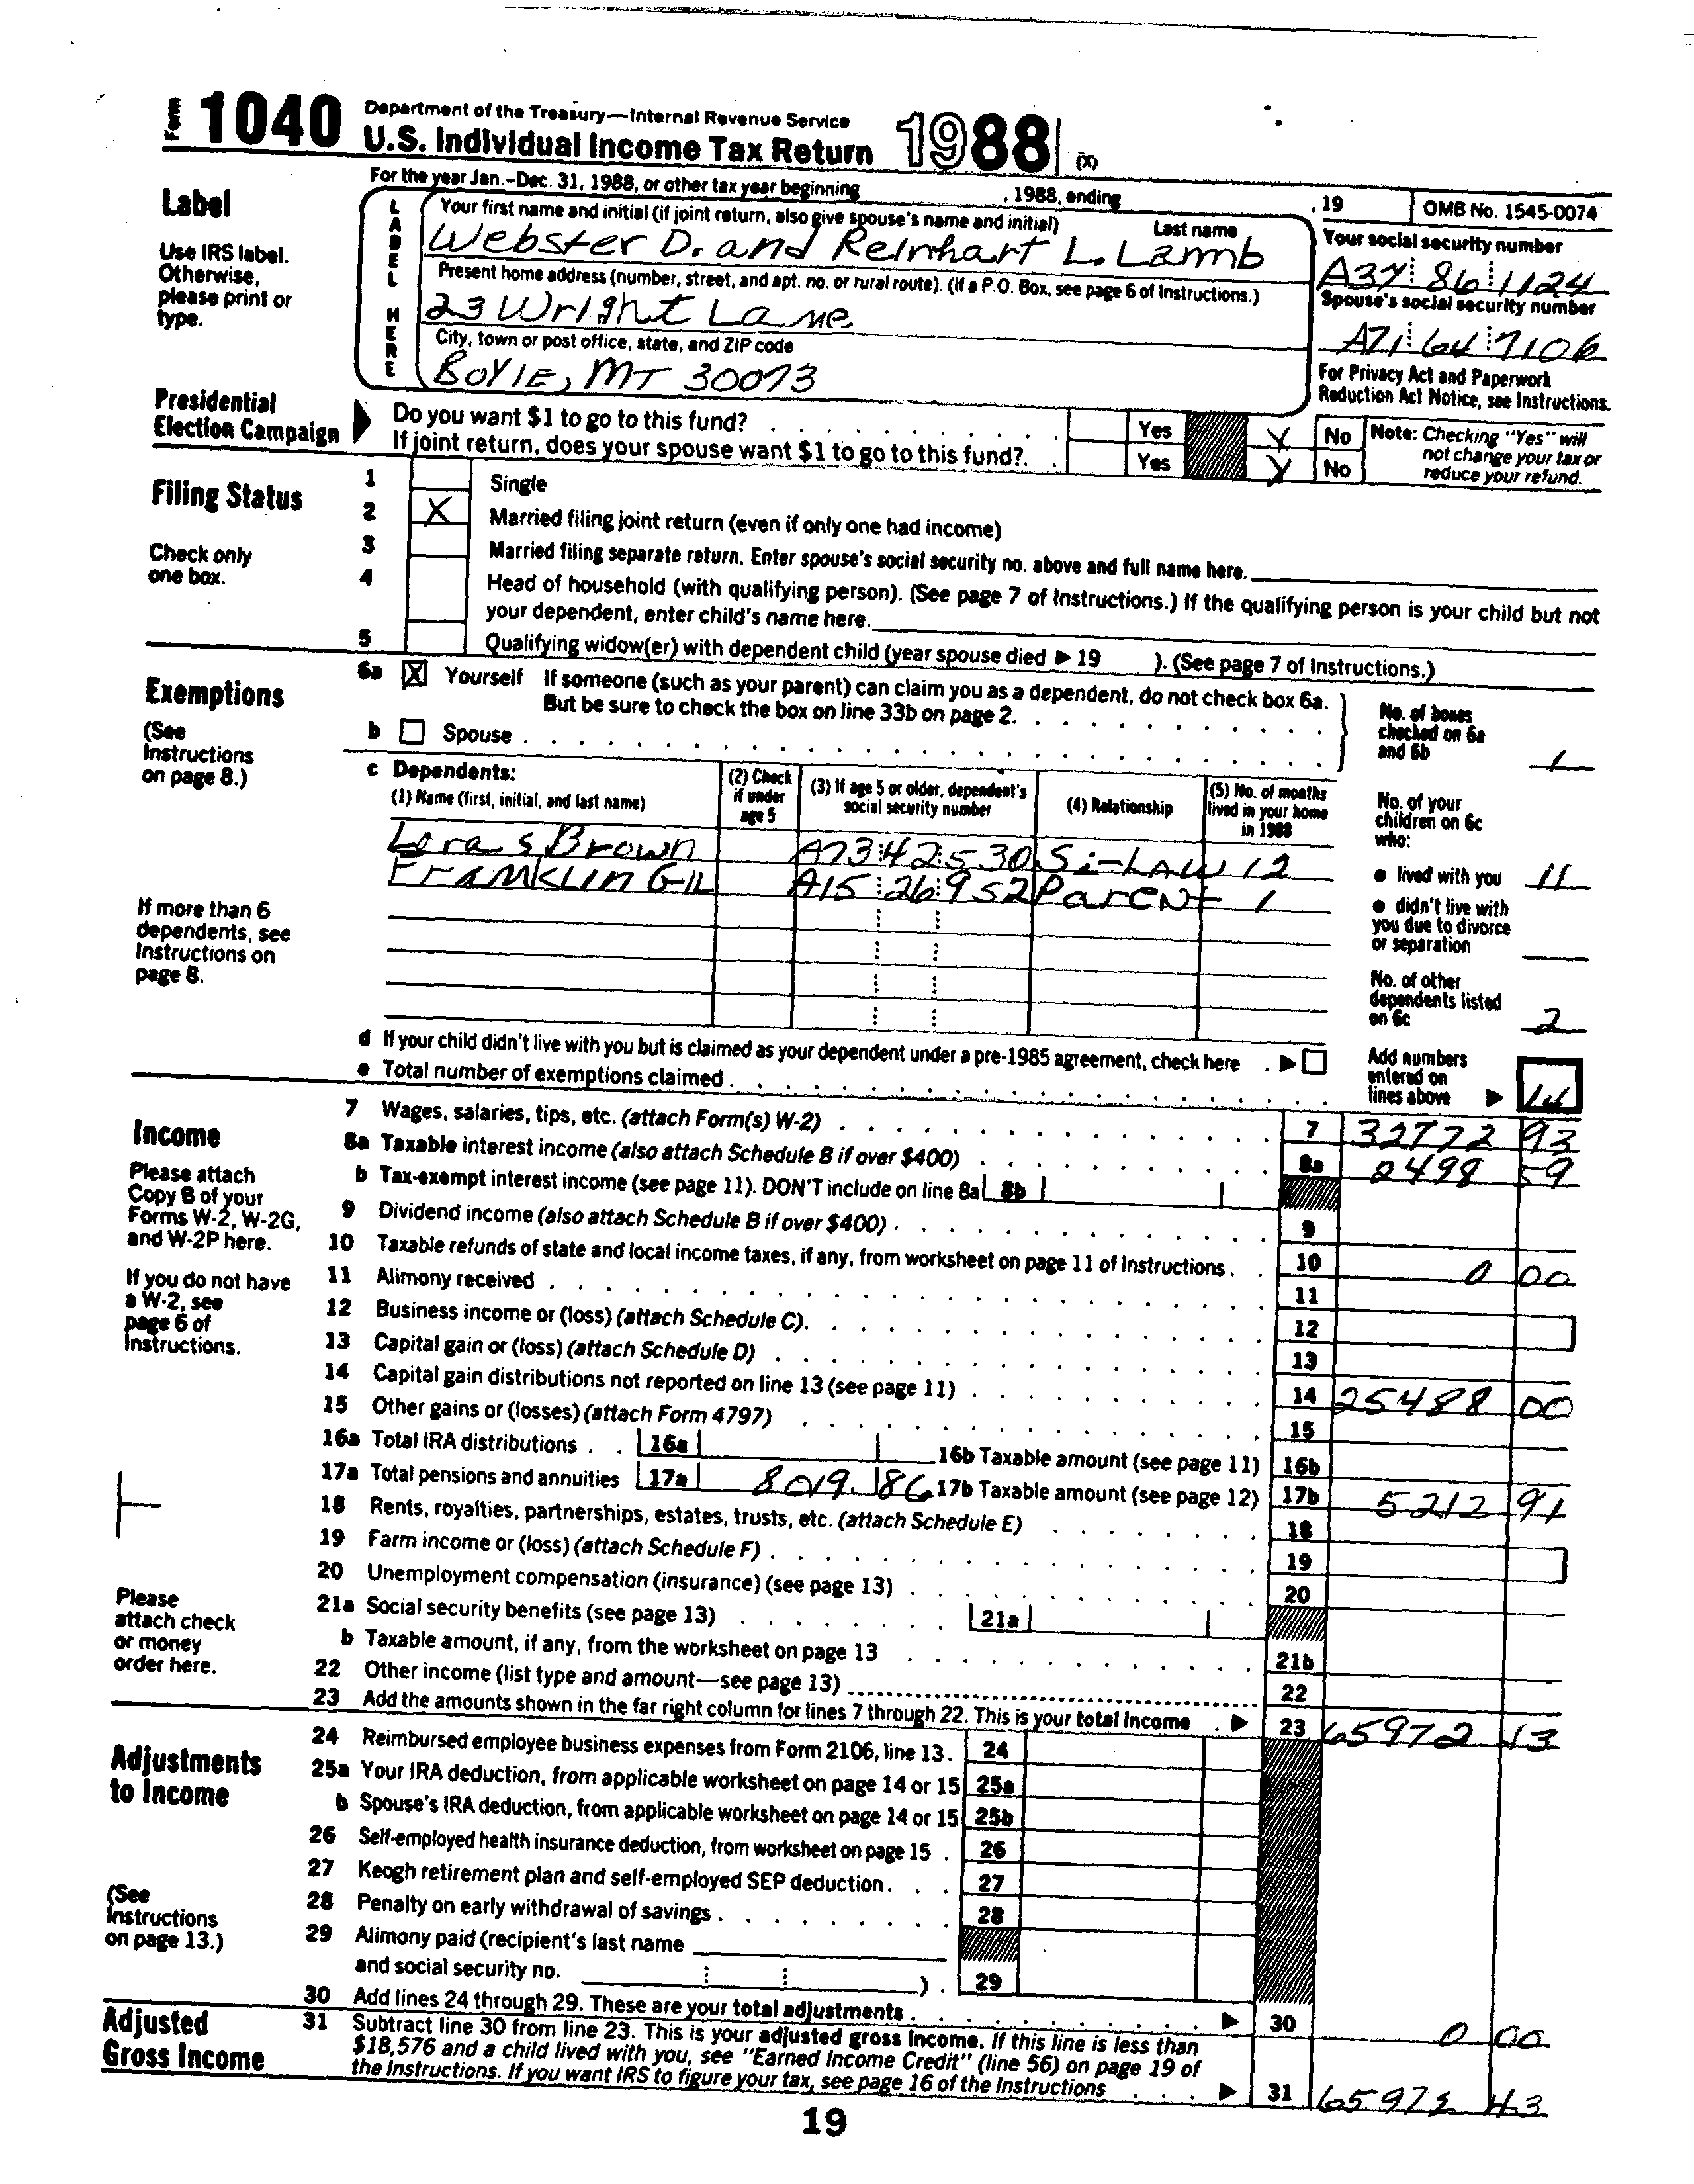 Form 1040 Department of the Treasury—Internal Revenue Service
U.S. Individual Income Tax Return 1988 (X)
For the year Jan.-Dec. 31, 1988, or other tax year beginning , 1988, ending , 19 OMB No. 1545-0074
Label
Use IRS label. Otherwise, please print or type.
LABEL HERE
Your first name and initial (if joint return, also give spouse's name and initial) Last name
Webster D. and Reinhart L. Lamb
Your social security number
A37 86 1124
Present home address (number, street, and apt. no. or rural route). (If a P.O. Box, see page 6 of Instructions.)
23 Wright Lane
Spouse's social security number
A71 64 7106
City, town or post office, state, and ZIP code
Boyle, MT 30073
For Privacy Act and Paperwork Reduction Act Notice, see Instructions.
Presidential Election Campaign
Do you want $1 to go to this fund? Yes X No
If joint return, does your spouse want $1 to go to this fund?. Yes X No
Note: Checking "Yes" will not change your tax or reduce your refund.
Filing Status
Check only one box.
1 Single
2 X Married filing joint return (even if only one had income)
3 Married filing separate return. Enter spouse's social security no. above and full name here.
4 Head of household (with qualifying person). (See page 7 of Instructions.) If the qualifying person is your child but not
your dependent, enter child's name here.
5 Qualifying widow(er) with dependent child (year spouse died ▶ 19 ). (See page 7 of Instructions.)
Exemptions
(See Instructions on page 8.)
6a X Yourself If someone (such as your parent) can claim you as a dependent, do not check box 6a.
But be sure to check the box on line 33b on page 2.
b Spouse
No. of boxes checked on 6a and 6b 1
c Dependents:
(1) Name (first, initial, and last name) (2) Check if under age 5 (3) If age 5 or older, dependent's social security number (4) Relationship (5) No. of months lived in your home in 1988
Lora S Brown A73 42 530 Si-LAW 12
Franklin Gil A15 26 952 Parent 1
No. of your children on 6c who:
● lived with you 11
● didn't live with you due to divorce or separation
No. of other dependents listed on 6c 2
If more than 6 dependents, see Instructions on page 8.
d If your child didn't live with you but is claimed as your dependent under a pre-1985 agreement, check here . ▶
e Total number of exemptions claimed
Add numbers entered on lines above ▶ 14
Income
Please attach Copy B of your Forms W-2, W-2G, and W-2P here.
If you do not have a W-2, see page 6 of Instructions.
Please attach check or money order here.
7 Wages, salaries, tips, etc. (attach Form(s) W-2) 7 32772 93
8a Taxable interest income (also attach Schedule B if over $400) 8a 2498 59
b Tax-exempt interest income (see page 11). DON'T include on line 8a 8b
9 Dividend income (also attach Schedule B if over $400) 9
10 Taxable refunds of state and local income taxes, if any, from worksheet on page 11 of Instructions 10 0 00
11 Alimony received 11
12 Business income or (loss) (attach Schedule C). 12
13 Capital gain or (loss) (attach Schedule D) 13
14 Capital gain distributions not reported on line 13 (see page 11) 14 25488 00
15 Other gains or (losses) (attach Form 4797) 15
16a Total IRA distributions 16a 16b Taxable amount (see page 11) 16b
17a Total pensions and annuities 17a 8019. 86 17b Taxable amount (see page 12) 17b 5212 91
18 Rents, royalties, partnerships, estates, trusts, etc. (attach Schedule E) 18
19 Farm income or (loss) (attach Schedule F) 19
20 Unemployment compensation (insurance) (see page 13) 20
21a Social security benefits (see page 13) 21a
b Taxable amount, if any, from the worksheet on page 13 21b
22 Other income (list type and amount—see page 13) 22
23 Add the amounts shown in the far right column for lines 7 through 22. This is your total income ▶ 23 65972 43
Adjustments to Income
(See Instructions on page 13.)
24 Reimbursed employee business expenses from Form 2106, line 13. 24
25a Your IRA deduction, from applicable worksheet on page 14 or 15 25a
b Spouse's IRA deduction, from applicable worksheet on page 14 or 15 25b
26 Self-employed health insurance deduction, from worksheet on page 15 26
27 Keogh retirement plan and self-employed SEP deduction 27
28 Penalty on early withdrawal of savings 28
29 Alimony paid (recipient's last name
and social security no. ) 29
30 Add lines 24 through 29. These are your total adjustments ▶ 30 0 00
Adjusted Gross Income
31 Subtract line 30 from line 23. This is your adjusted gross income. If this line is less than
$18,576 and a child lived with you, see "Earned Income Credit" (line 56) on page 19 of
the Instructions. If you want IRS to figure your tax, see page 16 of the Instructions ▶ 31 65972 43
19